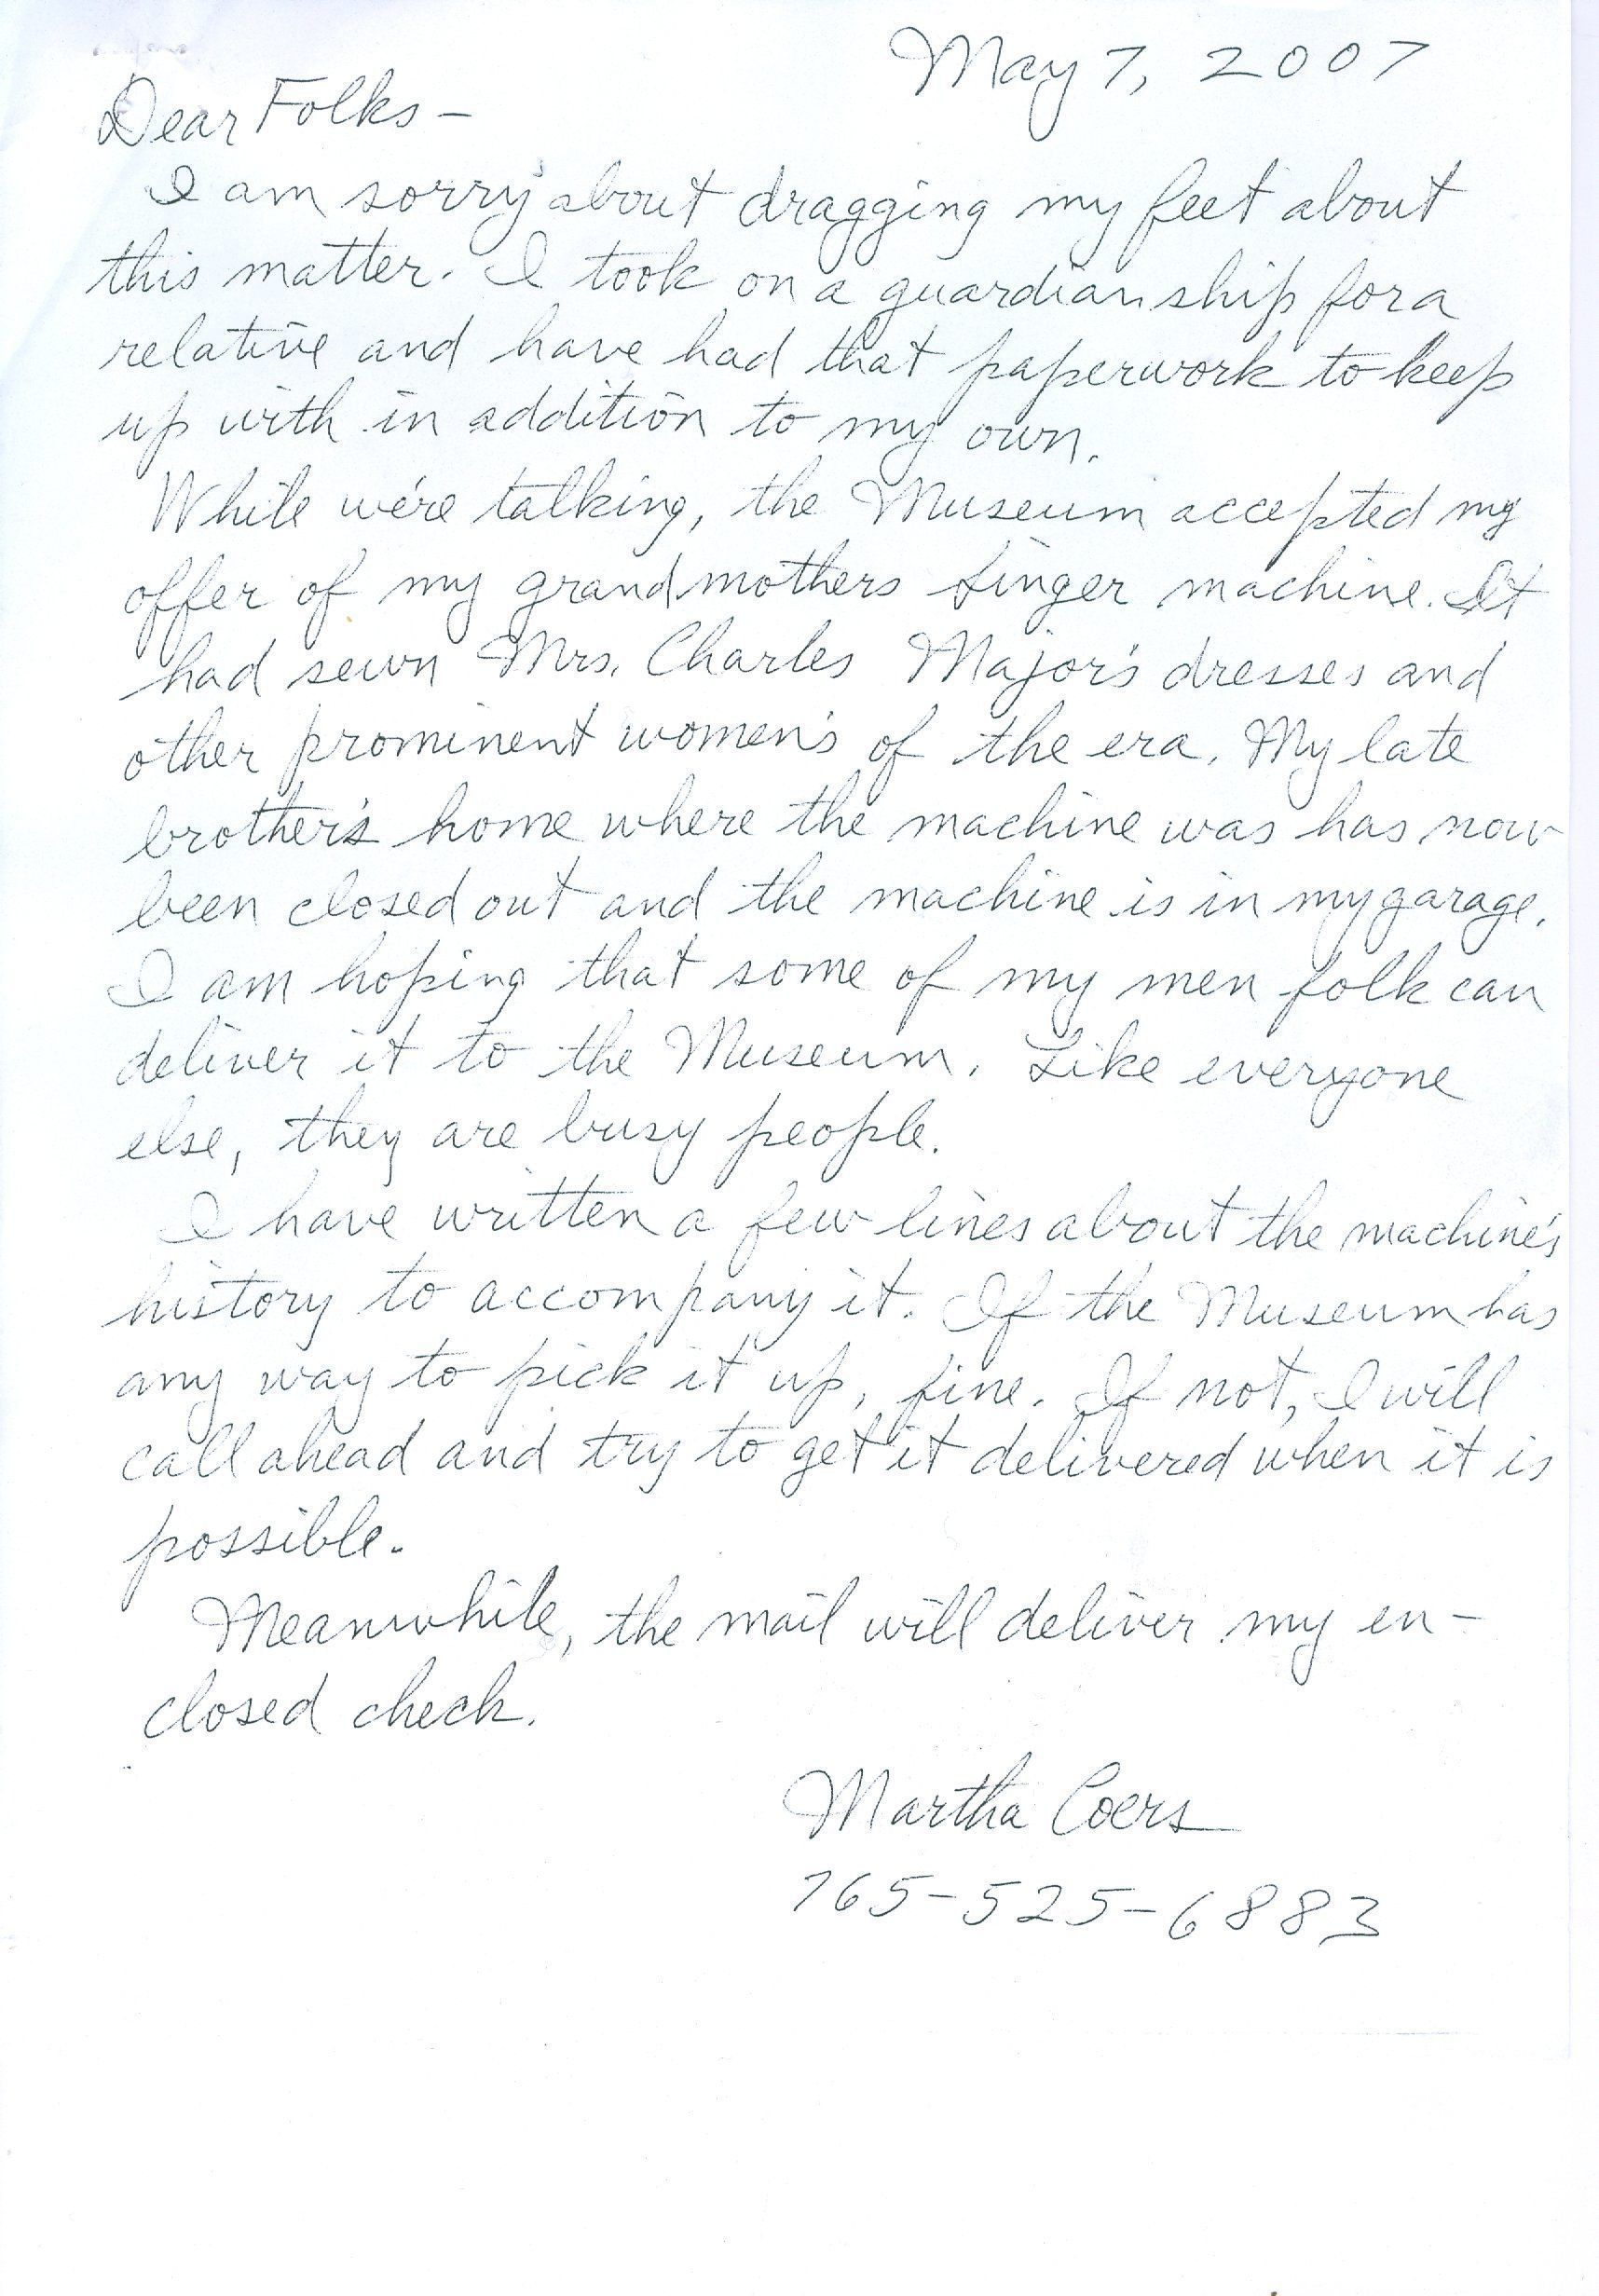 May 7, 2007
Dear Folks –
I am sorry about dragging my feet about
this matter. I took on a guardianship for a
relative and have had that paperwork to keep
up with in addition to my own.
While we're talking, the Museum accepted my
offer of my grandmothers Singer machine. It
had sewn Mrs. Charles Major's dresses and
other prominent women's of the era. My late
brother's home where the machine was has now
been closed out and the machine is in my garage.
I am hoping that some of my men folk can
deliver it to the Museum. Like everyone
else, they are busy people.
I have written a few lines about the machine's
history to accompany it. If the Museum has
any way to pick it up, fine. If not, I will
call ahead and try to get it delivered when it is
possible.
Meanwhile, the mail will deliver my en-
closed check.
Martha Coers
765-525-6883